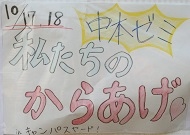 10/17.18
中本ゼミ
私たちの
からあげ。
in キャンパスヤード!